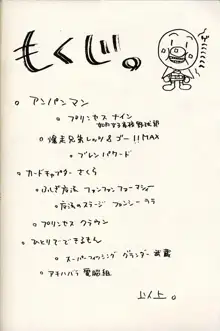 もくじ。
○ アンパンマン
○ プリンセスナイン
如月女子高校野球部
○ 爆走兄弟レッツ&ゴー!!MAX
○ ブレンパワード
○ カードキャプターさくら
○ ふしぎ魔法ファンファンファーマシィー
○ 魔法のステージファンシーララ
○ プリンセスクラウン
○ ひとりでできるもん
○ スーパーフィッシング グランダー武蔵
○ アキハバラ電脳組
以上。